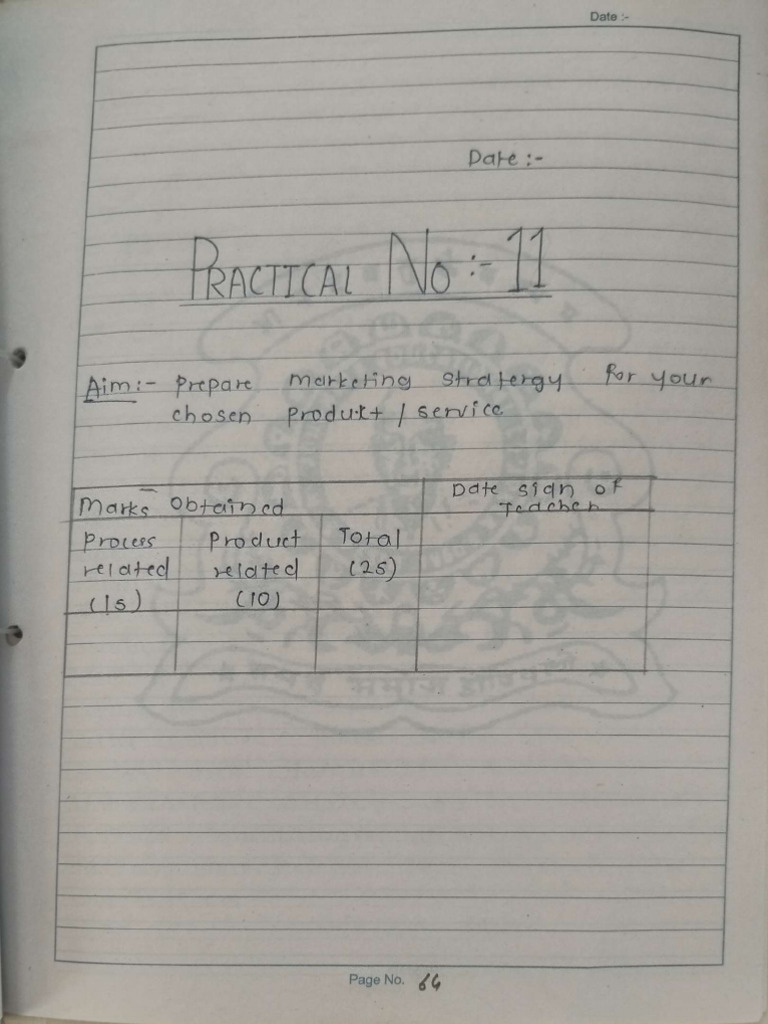 Date :-
Date :-
PRACTICAL No :- 11
Aim :- Prepare marketing stratergy for your
chosen Product / service
Marks obtained
Date sign of
Teacher
Process
related
(15)
Product
related
(10)
Total
(25)
Page No. 64